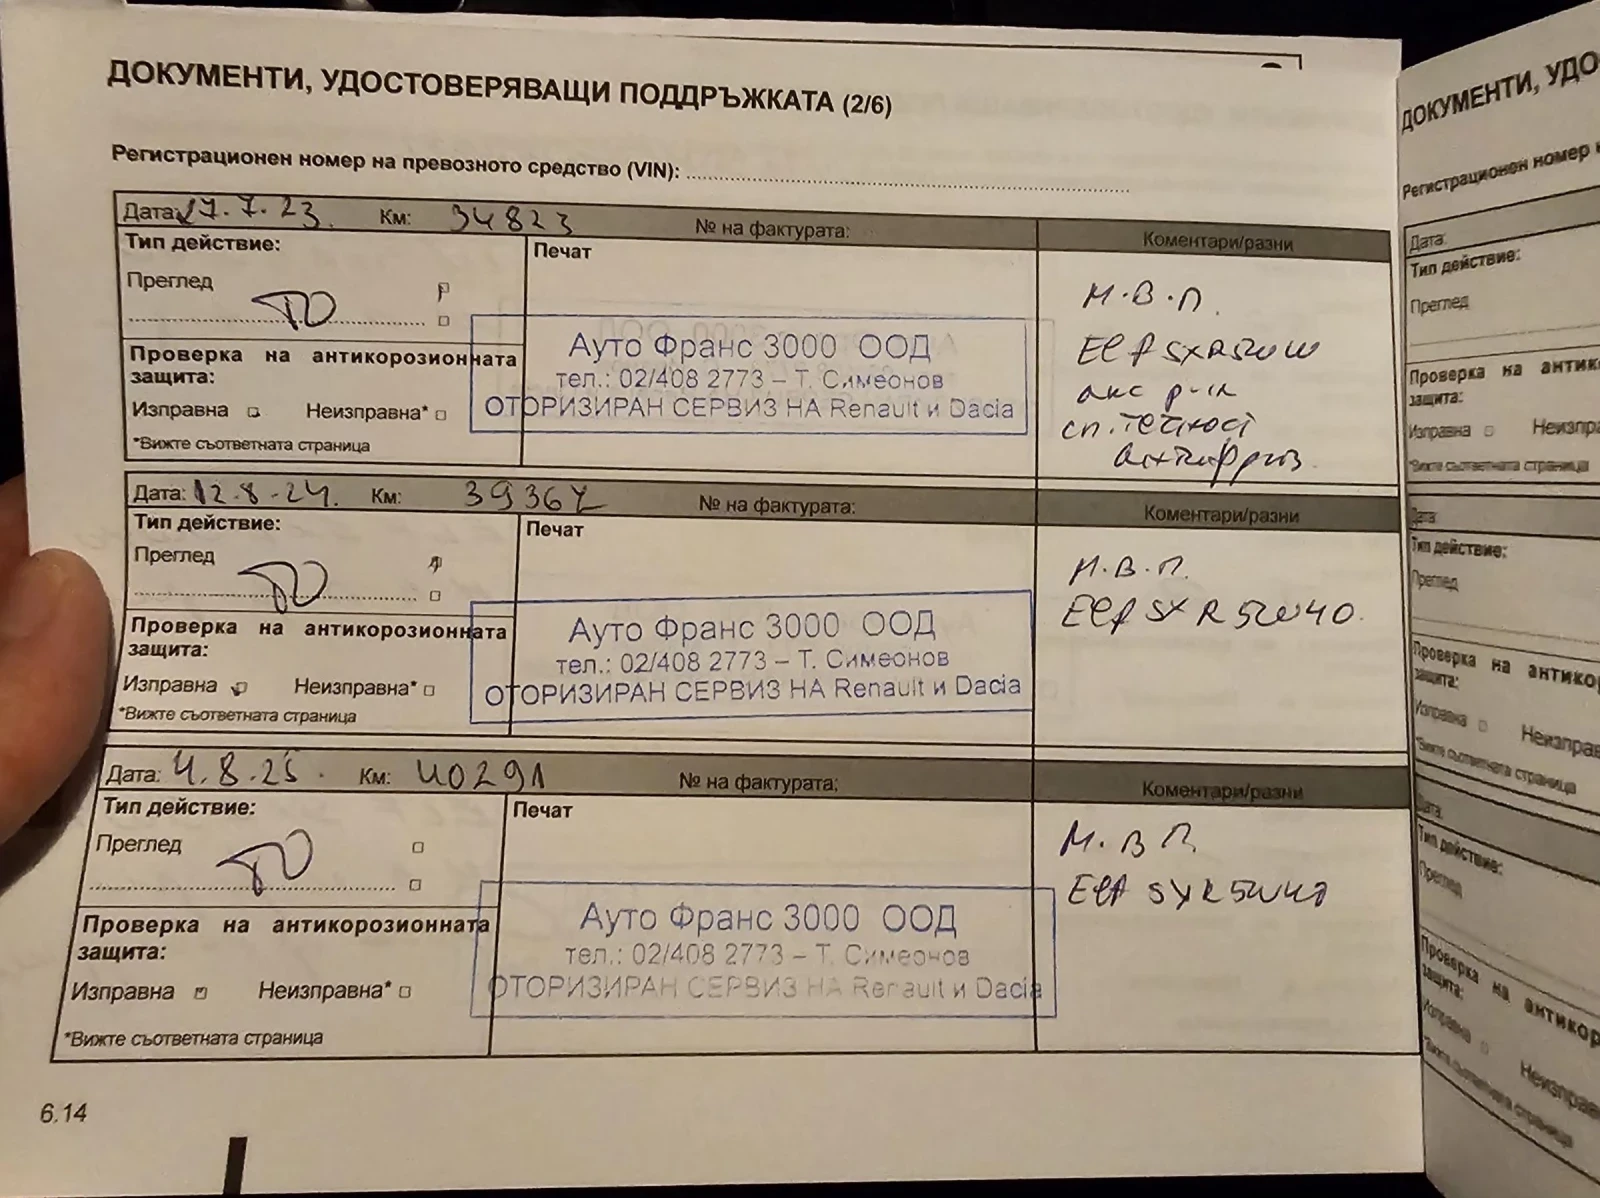 ДОКУМЕНТИ, УДОСТОВЕРЯВАЩИ ПОДДРЪЖКАТА (2/6)
Регистрационен номер на превозното средство (VIN):
Дата: 17.7.23. Км: 34823 № на фактурата: Коментари/разни
Тип действие: Печат
Преглед
ТО
М.В.П.
Проверка на антикорозионната защита:
Ауто Франс 3000 ООД
тел.: 02/408 2773 – Т. Симеонов
ОТОРИЗИРАН СЕРВИЗ НА Renault и Dacia
Elf SXR 5W40
акс р-к
сп. течност
антифриз
Изправна Неизправна*
*Вижте съответната страница
Дата: 12.8.24. Км: 39367 № на фактурата: Коментари/разни
Тип действие: Печат
Преглед
ТО
М.В.П.
Elf SXR 5W40.
Проверка на антикорозионната защита:
Ауто Франс 3000 ООД
тел.: 02/408 2773 – Т. Симеонов
ОТОРИЗИРАН СЕРВИЗ НА Renault и Dacia
Изправна Неизправна*
*Вижте съответната страница
Дата: 4.8.25. Км: 40291 № на фактурата: Коментари/разни
Тип действие: Печат
Преглед
ТО
М.В.П.
Elf SXR 5W40
Проверка на антикорозионната защита:
Ауто Франс 3000 ООД
тел.: 02/408 2773 – Т. Симеонов
ОТОРИЗИРАН СЕРВИЗ НА Renault и Dacia
Изправна Неизправна*
*Вижте съответната страница
6.14
ДОКУМЕНТИ, УДО
Регистрационен номер
Дата:
Тип действие:
Преглед
Проверка на антик
защита:
Изправна Неизпра
*Вижте съответната страница
Дата:
Тип действие:
Преглед
Проверка на антико
защита:
Изправна Неизправ
*Вижте съответната страница
Дата:
Тип действие:
Преглед
Проверка на антикор
защита:
Изправна Неизправн
*Вижте съответната страница